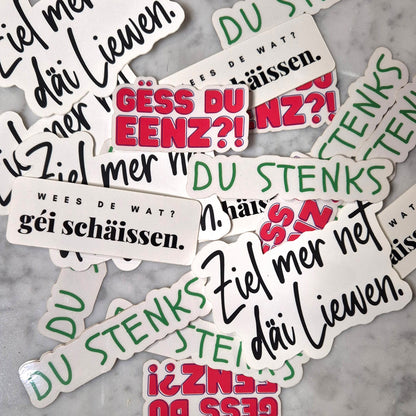 Ziel mer net
däi Liewen.
DU STENKS
WEES DE WAT?
schäissen.
GËSS DU
EENZ?!
DU STENKS
STENKS
Ziel mer net
DU STENKS
WEES DE WAT?
géi schäissen.
häis
SS
ENZ
Ziel mer net
däi Liewen.
DU
DU STENKS
STENKS
GËSS DU
EENZ?!